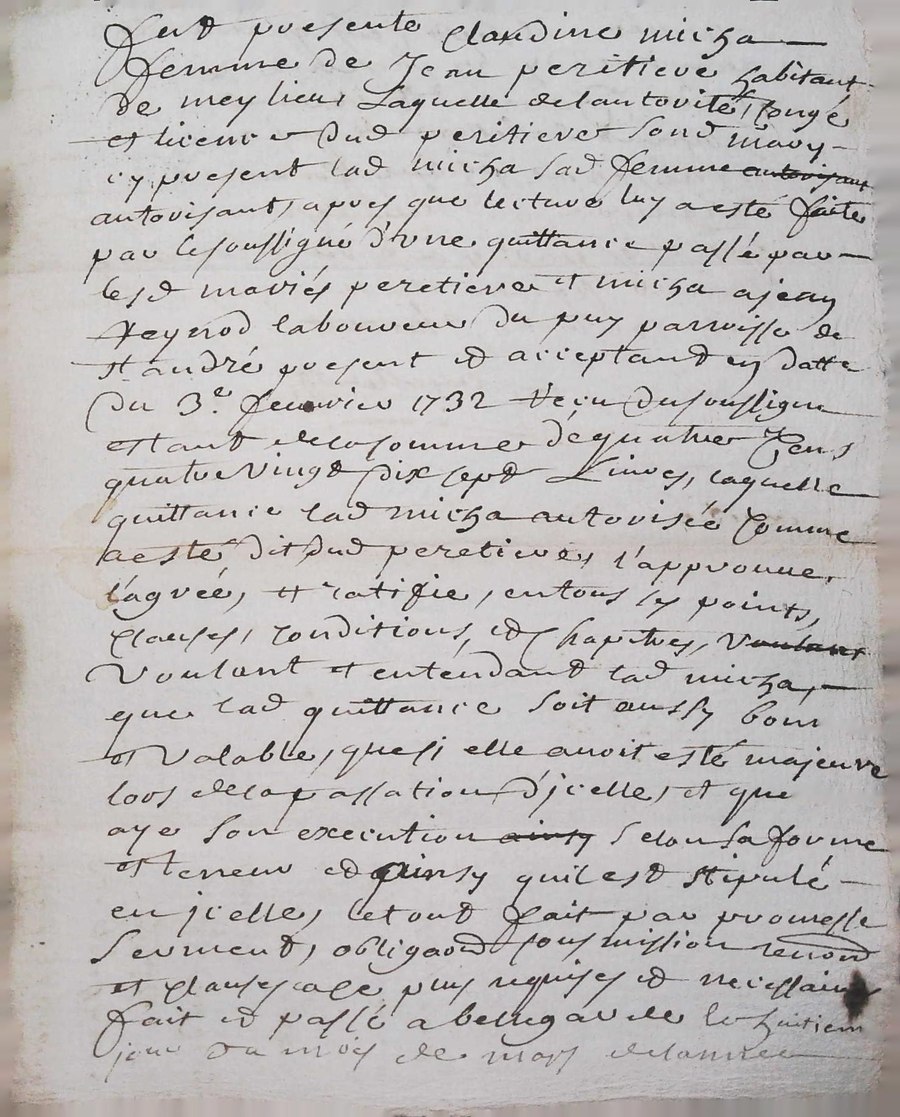 fust presente Claudine micha
femme de Jean peritieve habitant
de meylieu, Laquelle de lautorité, Congé
et licence dud peritieve sond mary
cy present lad micha sad femme autorisant
autorisant, apres que lecture luy a esté faite
par le soussigné d'une quittance passé par
lesd mariés peretieve et micha a jean
Reynod laboureur du puy parroisse de
st andré present et acceptant en datte
du 3e. feuvrier 1732 Receu du soussigne
estant de la somme de quatre Cens
quatre Vingt dix sept Livres, laquelle
quittance lad micha autorisée Comme
a esté dit dud peretieve, l'approuve,
l'agrée, et ratifie, en tous ses points,
Clauses, Conditions, et Chapitres, Voulant
Voulant et entendant lad micha,
que lad quittance soit aussy bone
et Valable, que si elle avoit esté majeure
lors de la passation d'jcelle, et que
aye son execution ainsy selon sa forme
et teneur et ainsy quil est stipulé
en jcelle, le tout fait par promesse
serment, obligaon sousmission renond
et Clauses a ce plus requises et necessaire
fait et passé a bellegarde le huitiem
jour du mois de mars de lannée